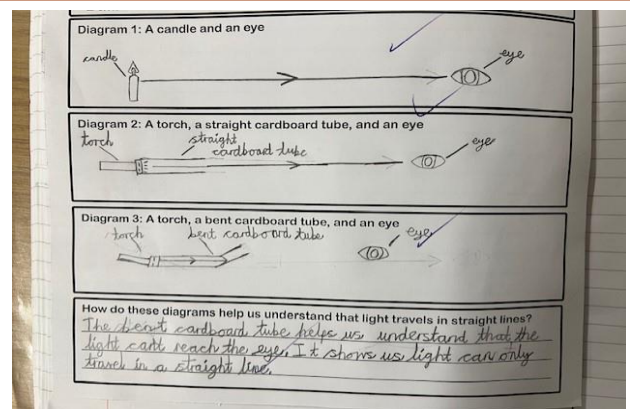 Diagram 1: A candle and an eye
candle
eye
Diagram 2: A torch, a straight cardboard tube, and an eye
torch
straight
cardboard tube
eye
Diagram 3: A torch, a bent cardboard tube, and an eye
torch
bent cardboard tube
eye
How do these diagrams help us understand that light travels in straight lines?
The bent cardboard tube helps us understand that the
light cant reach the eye. It shows us light can only
travel in a straight line.